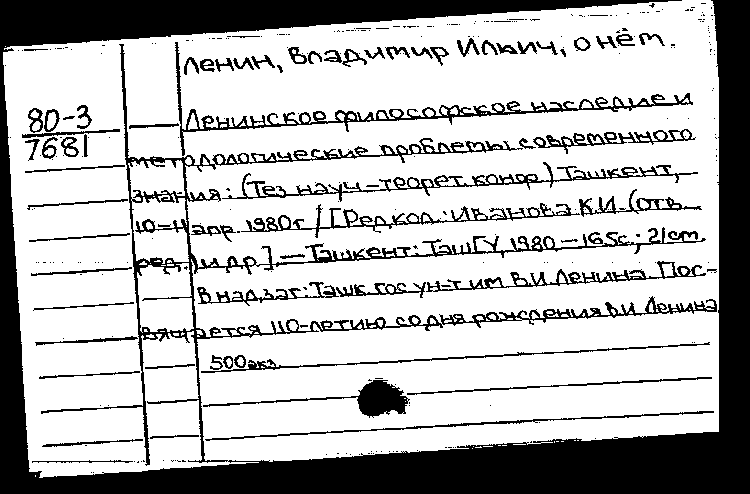 Ленин, Владимир Ильич, о нём.
80-3
7681
Ленинское философское наследие и
методологические проблемы современного
знания: (Тез науч-теорет. конф.) Ташкент,
10-11 апр. 1980г / [Редкол.: Иванова К.И. (отв
ред.) и др.]. — Ташкент: ТашГУ, 1980 — 165с.; 21см.
В надзаг: Ташк. гос ун-т им В.И. Ленина. Пос-
вящается 110-летию со дня рождения В.И Ленина
500экз.